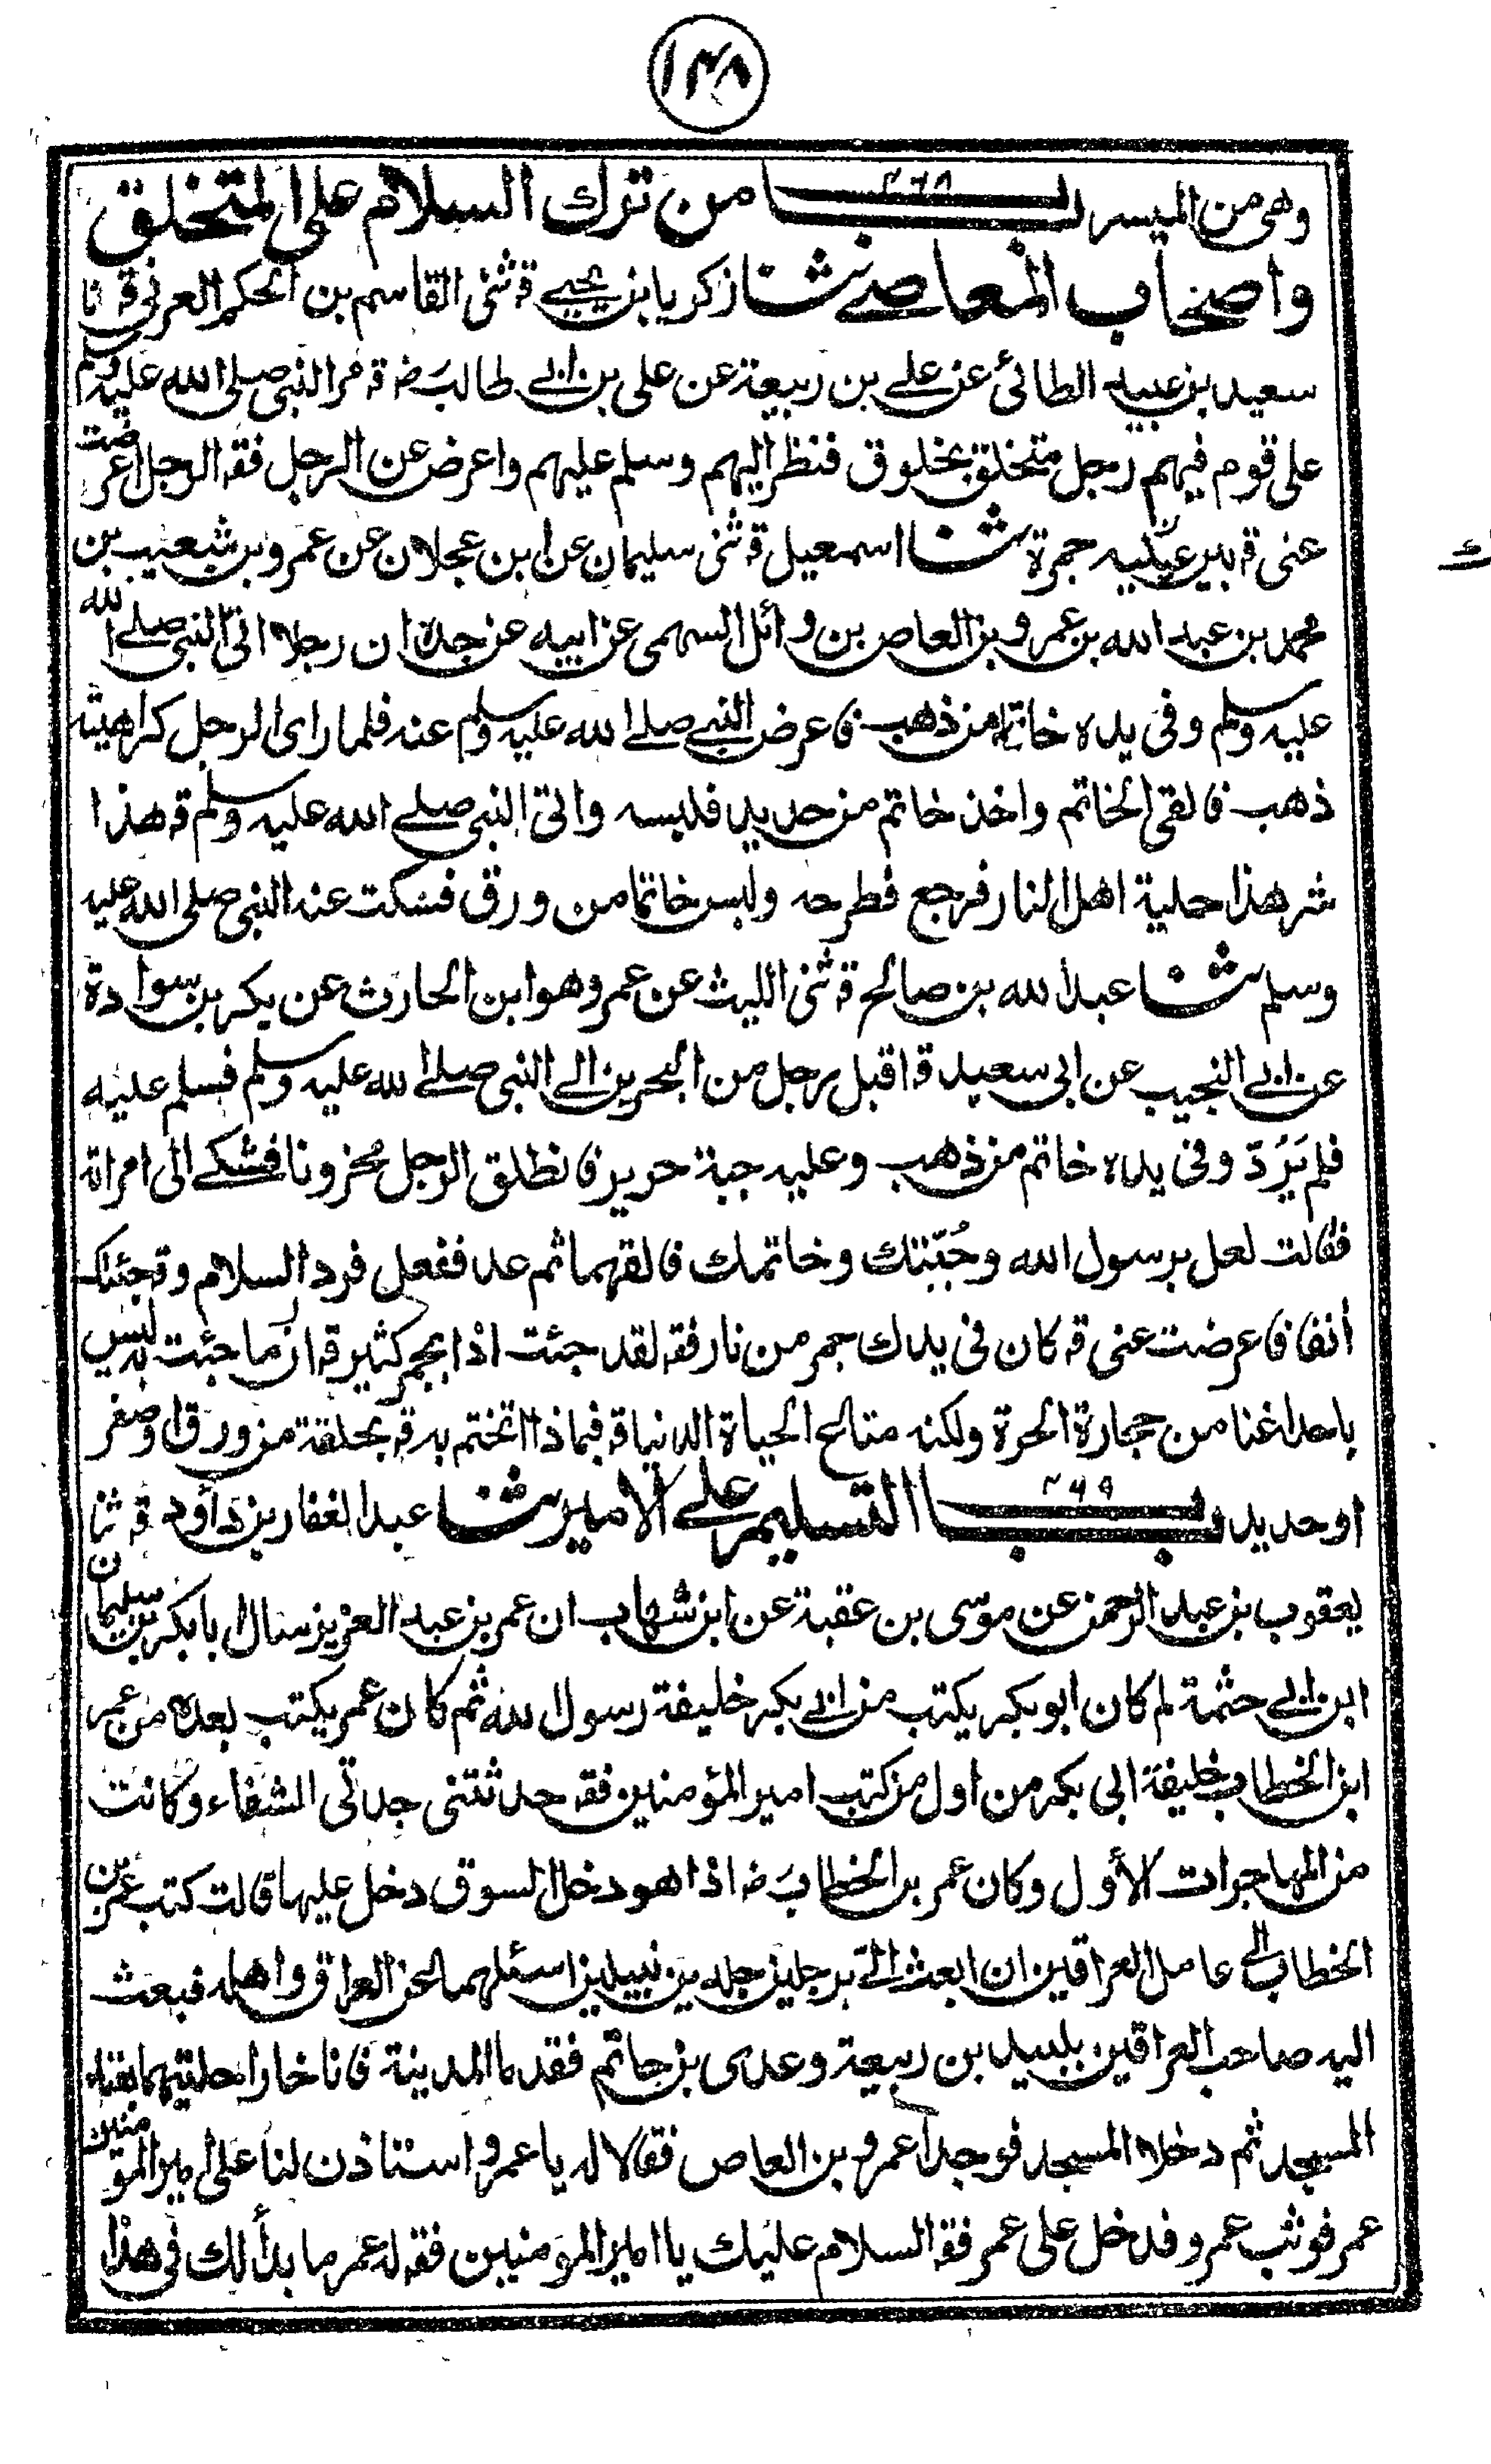 ١٤٨
وهى من الميسر باب ٤٦٨ من ترك السلام على المتخلق
واصحاب المعاصى ثنا زكريا بن يحيى قه ثنى القاسم بن الحكم العرنى قه نا
سعيد بن عبيد الطائى عن على بن ربيعة عن على بن ابى طالب رضه قه مر النبى صلى الله عليه وسلم
على قوم فيهم رجل متخلق بخلوق فنظر اليهم وسلم عليهم واعرض عن الرجل فقه الرجل اعرضت
عنى قه بين عينيه جمرة ثنا اسمعيل قه ثنى سليمان عن ابن عجلان عن عمرو بن شعيب بن
محمد بن عبد الله بن عمرو بن العاص بن وائل السهمى عن ابيه عن جده ان رجلا اتى النبى صلى الله
عليه وسلم وفى يده خاتم من ذهب فاعرض النبى صلى الله عليه وسلم عنه فلما راى الرجل كراهيته
ذهب فالقى الخاتم واخذ خاتم من حديد فلبسه واتى النبى صلى الله عليه وسلم قه هذا
شر هذا حلية اهل النار فرجع فطرحه ولبس خاتما من ورق فسكت عنه النبى صلى الله عليه
وسلم ثنا عبد الله بن صالح قه ثنى الليث عن عمرو هو ابن الحارث عن بكر بن سوادة
عن ابى النجيب عن ابى سعيد قه اقبل رجل من البحرين الى النبى صلى الله عليه وسلم فسلم عليه
فلم يَرُدّ وفى يده خاتم من ذهب وعليه جبة حرير فانطلق الرجل محزونا فشكى الى امراته
فقالت لعل برسول الله وجُبّتك وخاتمك فالقهما ثم عد ففعل فرد السلام وقه جئتك
آنفا فاعرضت عنى قه كان فى يدك جمر من نار فقه لقد جئت اذا بجمر كثير قه ان ما جئت به ليس
باحد اغنا من حجارة الحرة ولكنه متاع الحياة الدنيا قه فبماذا اتختم به قه بحلقة من ورق او صفر
او حديد باب ٤٦٩ التسليم على الامير ثنا عبد الغفار بن داود قه ثنا
يعقوب بن عبد الرحمن عن موسى بن عقبة عن ابن شهاب ان عمر بن عبد العزيز سال ابا بكر بن سليمان
ابن ابى حثمة لم كان ابو بكر يكتب من ابى بكر خليفة رسول الله ثم كان عمر يكتب بعده من عمر
ابن الخطاب خليفة ابى بكر من اول من كتب امير المؤمنين فقه حدثتنى جدتى الشفاء وكانت
من المهاجرات الأول وكان عمر بن الخطاب رضه اذا هو دخل السوق دخل عليها قالت كتب عمر بن
الخطاب الى عامل العراقين ان ابعث الىّ برجلين جلدين نبيلين اسئلهما عن العراق واهله فبعث
اليه صاحب العراقين بلبيد بن ربيعة وعدى بن حاتم فقدما المدينة فاناخا راحلتيهما بفناء
المسجد ثم دخلا المسجد فوجدا عمرو بن العاص فقالا له يا عمرو استاذن لنا على امير المؤمنين
عمر فوثب عمرو فدخل على عمر فقه السلام عليك يا امير المؤمنين فقه له عمر ما بدألك فى هذا